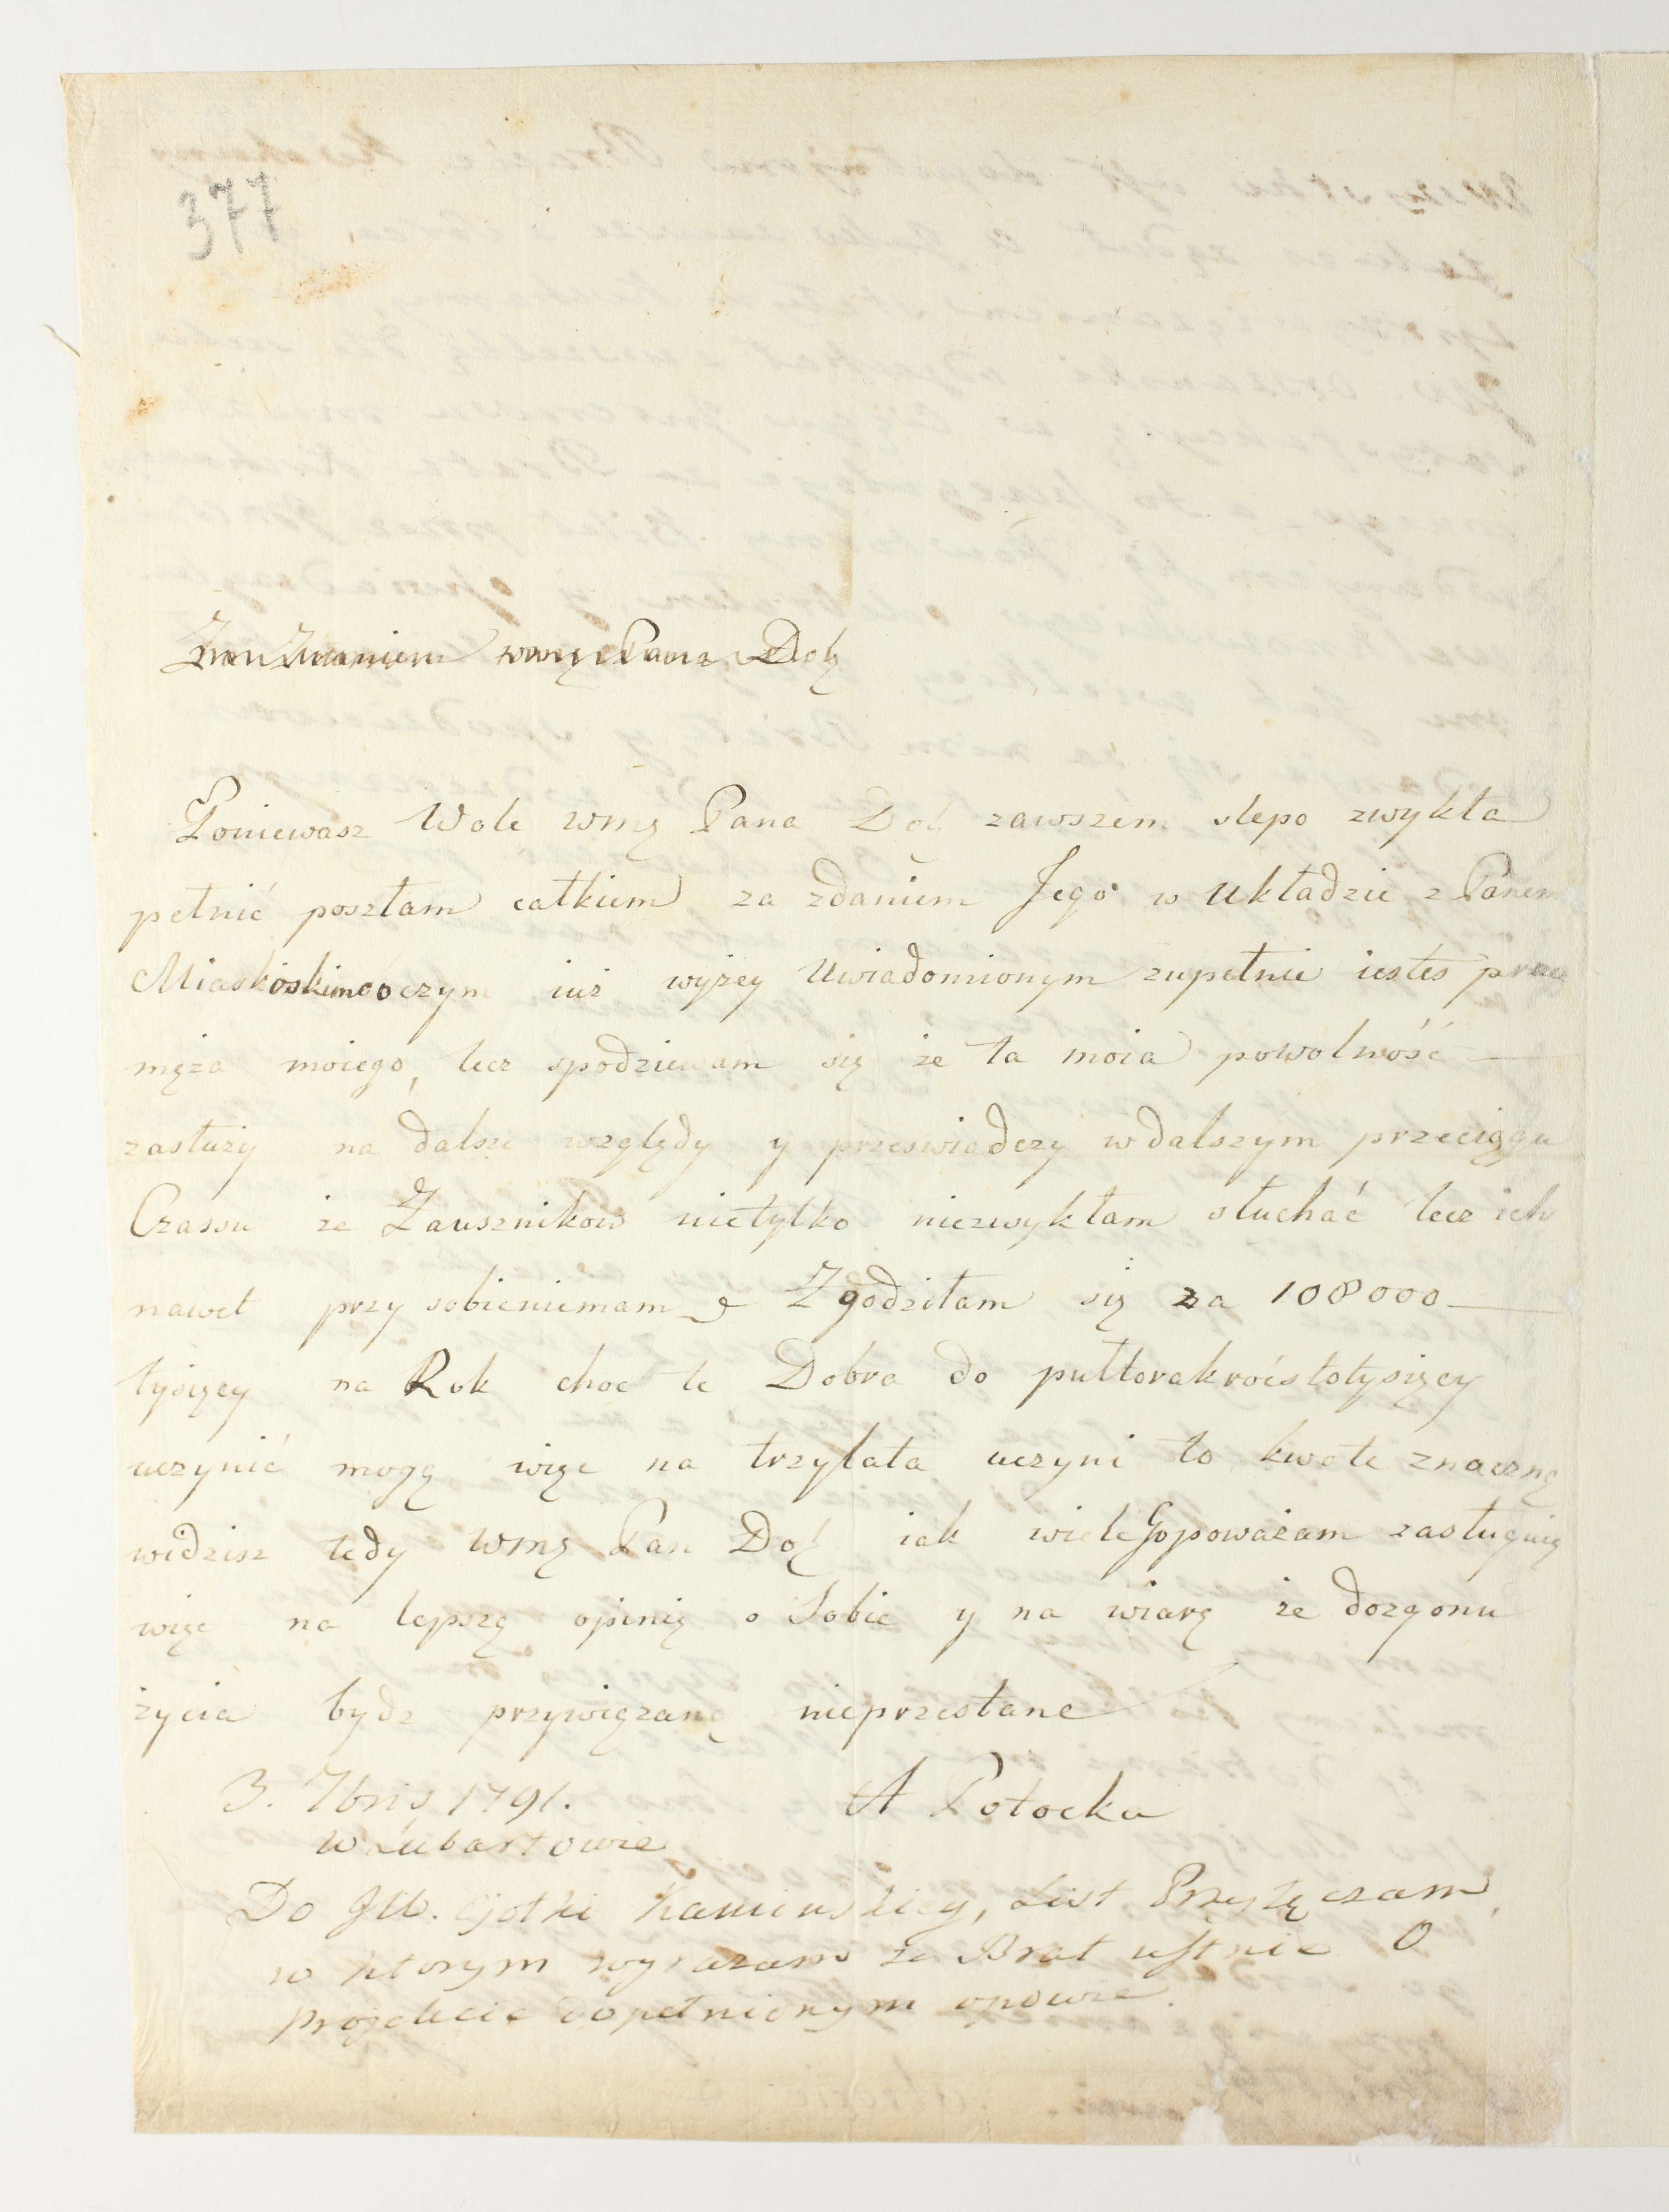 377
wmę Pana Dob
Poniewasz Wole wmę Pana Dob zawszem slepo zwykła
pełnić poszłam całkiem za zdaniem Jego w Układzie z Panem
Miaskoskim o czym iuż wyżey Uwiadomionym zupełnie iestes przez
męża moiego, lecz spodziewam się że ta moia powolność
zasłuży na dalsze względy y przeswiadczy w dalszym przeciągu
Czassu że Zausznikow nietylko niezwykłam słuchać lecz ich
nawet przy sobieniemam Zgodziłam się za 108000
tysięcy na Rok choc te Dobra do pułtorakroćstotysięcy
uczynić mogą więc na trzylata uczyni to kwote znaczną
widzisz tedy wmę Pan Dob iak wieleGopoważam zasługuię
więc na lepszą opinię o Sobie y na wiarę że dozgonu
życia bydz przywiązaną nieprzestane
3. 7bris 1791. A Potocka
w Lubartowie
Do JW. Kaminskiey, List Przyłęczam,
w ktorym wyrazam że Brat ustnie O
Projekcie dopełnionym opowie.